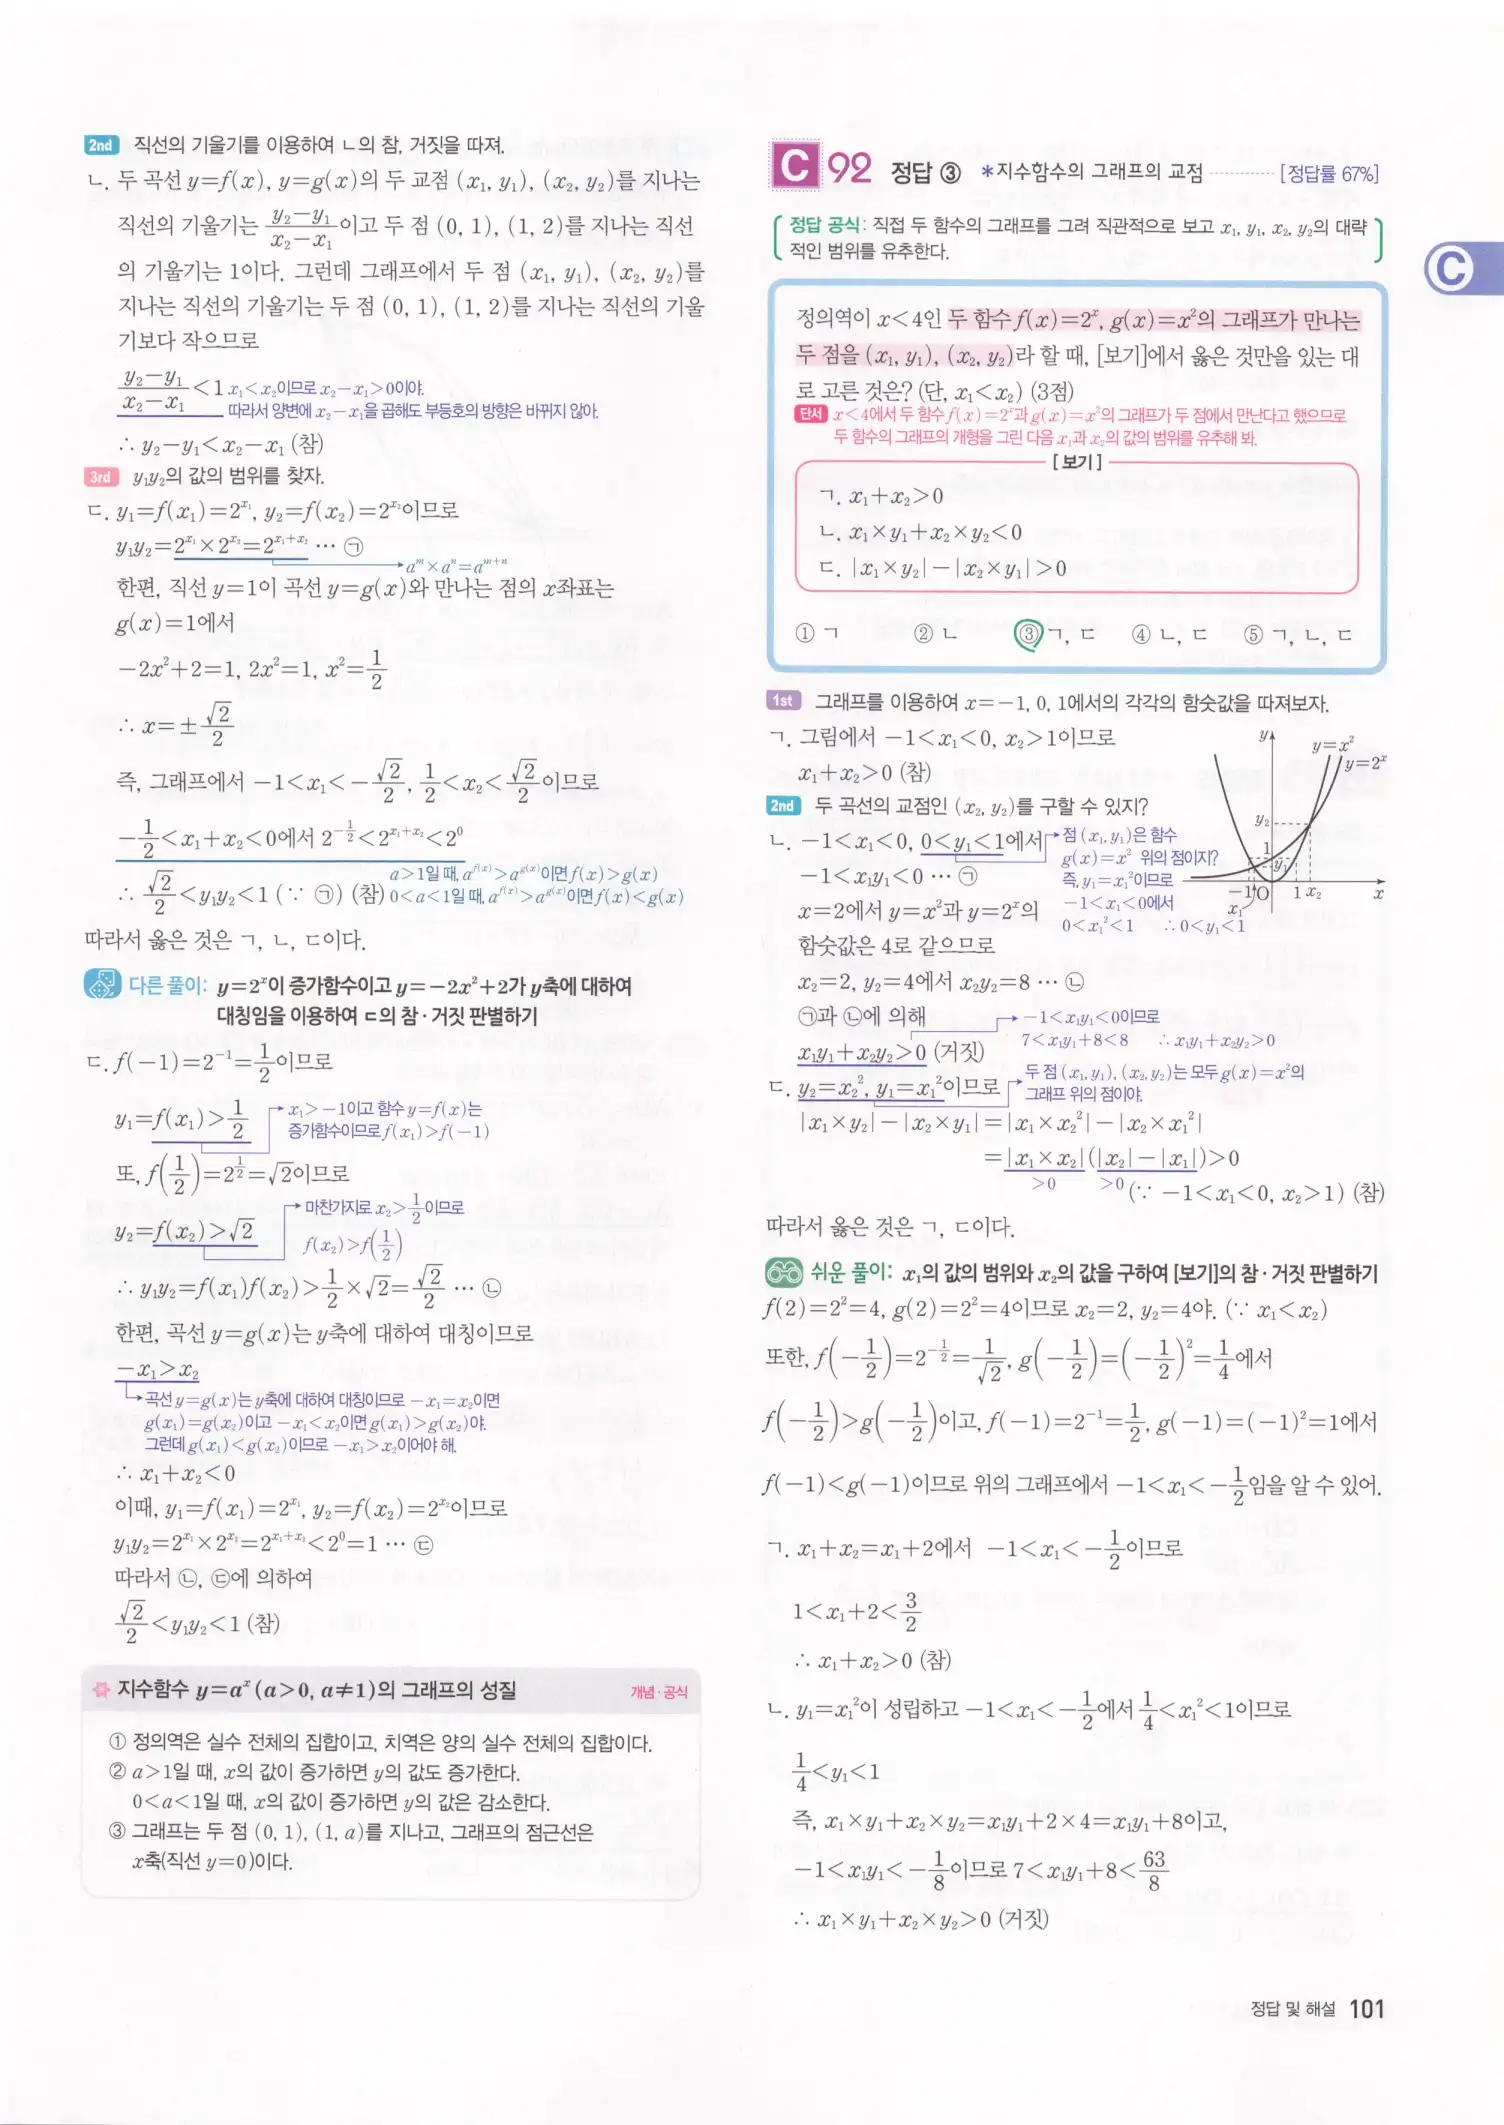 2nd 직선의 기울기를 이용하여 ㄴ의 참, 거짓을 따져.
ㄴ. 두 곡선 y=f(x), y=g(x)의 두 교점 (x₁, y₁), (x₂, y₂)를 지나는
직선의 기울기는 (y₂−y₁)/(x₂−x₁)이고 두 점 (0, 1), (1, 2)를 지나는 직선
의 기울기는 1이다. 그런데 그래프에서 두 점 (x₁, y₁), (x₂, y₂)를
지나는 직선의 기울기는 두 점 (0, 1), (1, 2)를 지나는 직선의 기울
기보다 작으므로
(y₂−y₁)/(x₂−x₁)<1 x₁<x₂이므로 x₂−x₁>0이야.
따라서 양변에 x₂−x₁을 곱해도 부등호의 방향은 바뀌지 않아.
∴ y₂−y₁<x₂−x₁ (참)
3rd y₁y₂의 값의 범위를 찾자.
ㄷ. y₁=f(x₁)=2^{x₁}, y₂=f(x₂)=2^{x₂}이므로
y₁y₂=2^{x₁}×2^{x₂}=2^{x₁+x₂} ⋯ ㉠
a^m×a^n=a^{m+n}
한편, 직선 y=1이 곡선 y=g(x)와 만나는 점의 x좌표는
g(x)=1에서
−2x²+2=1, 2x²=1, x²=1/2
∴ x=±√2/2
즉, 그래프에서 −1<x₁<−√2/2, 1/2<x₂<√2/2이므로
−1/2<x₁+x₂<0에서 2^{−1/2}<2^{x₁+x₂}<2⁰
a>1일 때, a^{f(x)}>a^{g(x)}이면 f(x)>g(x)
∴ √2/2<y₁y₂<1 (∵ ㉠) (참) 0<a<1일 때, a^{f(x)}>a^{g(x)}이면 f(x)<g(x)
따라서 옳은 것은 ㄱ, ㄴ, ㄷ이다.
다른 풀이: y=2^x이 증가함수이고 y=−2x²+2가 y축에 대하여
대칭임을 이용하여 ㄷ의 참·거짓 판별하기
ㄷ. f(−1)=2^{−1}=1/2이므로
y₁=f(x₁)>1/2
x₁>−1이고 함수 y=f(x)는
증가함수이므로 f(x₁)>f(−1)
또, f(1/2)=2^{1/2}=√2이므로
y₂=f(x₂)>√2
마찬가지로 x₂>1/2이므로
f(x₂)>f(1/2)
∴ y₁y₂=f(x₁)f(x₂)>1/2×√2=√2/2 ⋯ ㉡
한편, 곡선 y=g(x)는 y축에 대하여 대칭이므로
−x₁>x₂
곡선 y=g(x)는 y축에 대하여 대칭이므로 −x₁=x₂이면
g(x₁)=g(x₂)이고 −x₁<x₂이면 g(x₁)>g(x₂)야.
그런데 g(x₁)<g(x₂)이므로 −x₁>x₂이어야 해.
∴ x₁+x₂<0
이때, y₁=f(x₁)=2^{x₁}, y₂=f(x₂)=2^{x₂}이므로
y₁y₂=2^{x₁}×2^{x₂}=2^{x₁+x₂}<2⁰=1 ⋯ ㉢
따라서 ㉡, ㉢에 의하여
√2/2<y₁y₂<1 (참)
지수함수 y=a^x (a>0, a≠1)의 그래프의 성질 개념·공식
① 정의역은 실수 전체의 집합이고, 치역은 양의 실수 전체의 집합이다.
② a>1일 때, x의 값이 증가하면 y의 값도 증가한다.
0<a<1일 때, x의 값이 증가하면 y의 값은 감소한다.
③ 그래프는 두 점 (0, 1), (1, a)를 지나고, 그래프의 점근선은
x축(직선 y=0)이다.
C 92 정답 ③ *지수함수의 그래프의 교점 ⋯⋯ [정답률 67%]
정답 공식: 직접 두 함수의 그래프를 그려 직관적으로 보고 x₁, y₁, x₂, y₂의 대략
적인 범위를 유추한다.
C
정의역이 x<4인 두 함수 f(x)=2^x, g(x)=x²의 그래프가 만나는
두 점을 (x₁, y₁), (x₂, y₂)라 할 때, [보기]에서 옳은 것만을 있는 대
로 고른 것은? (단, x₁<x₂) (3점)
단서 x<4에서 두 함수 f(x)=2^x과 g(x)=x²의 그래프가 두 점에서 만난다고 했으므로
두 함수의 그래프의 개형을 그린 다음 x₁과 x₂의 값의 범위를 유추해 봐.
[보기]
ㄱ. x₁+x₂>0
ㄴ. x₁×y₁+x₂×y₂<0
ㄷ. |x₁×y₂|−|x₂×y₁|>0
① ㄱ ② ㄴ ③ ㄱ, ㄷ ④ ㄴ, ㄷ ⑤ ㄱ, ㄴ, ㄷ
1st 그래프를 이용하여 x=−1, 0, 1에서의 각각의 함숫값을 따져보자.
ㄱ. 그림에서 −1<x₁<0, x₂>1이므로
x₁+x₂>0 (참)
y y=x² y=2^x
y₂
1
y₁
−1 O 1 x₂ x
x₁
2nd 두 곡선의 교점인 (x₂, y₂)를 구할 수 있지?
ㄴ. −1<x₁<0, 0<y₁<1에서
−1<x₁y₁<0 ⋯ ㉠
점 (x₁, y₁)은 함수
g(x)=x² 위의 점이지?
즉, y₁=x₁²이므로
−1<x₁<0에서
0<x₁²<1 ∴ 0<y₁<1
x=2에서 y=x²과 y=2^x의
함숫값은 4로 같으므로
x₂=2, y₂=4에서 x₂y₂=8 ⋯ ㉡
㉠과 ㉡에 의해
x₁y₁+x₂y₂>0 (거짓)
−1<x₁y₁<0이므로
7<x₁y₁+8<8 ∴ x₁y₁+x₂y₂>0
ㄷ. y₂=x₂², y₁=x₁²이므로
두 점 (x₁, y₁), (x₂, y₂)는 모두 g(x)=x²의
그래프 위의 점이야.
|x₁×y₂|−|x₂×y₁|=|x₁×x₂²|−|x₂×x₁²|
=|x₁×x₂|(|x₂|−|x₁|)>0
>0 >0 (∵ −1<x₁<0, x₂>1) (참)
따라서 옳은 것은 ㄱ, ㄷ이다.
쉬운 풀이: x₁의 값의 범위와 x₂의 값을 구하여 [보기]의 참·거짓 판별하기
f(2)=2²=4, g(2)=2²=4이므로 x₂=2, y₂=4야. (∵ x₁<x₂)
또한, f(−1/2)=2^{−1/2}=1/√2, g(−1/2)=(−1/2)²=1/4에서
f(−1/2)>g(−1/2)이고, f(−1)=2^{−1}=1/2, g(−1)=(−1)²=1에서
f(−1)<g(−1)이므로 위의 그래프에서 −1<x₁<−1/2임을 알 수 있어.
ㄱ. x₁+x₂=x₁+2에서 −1<x₁<−1/2이므로
1<x₁+2<3/2
∴ x₁+x₂>0 (참)
ㄴ. y₁=x₁²이 성립하고 −1<x₁<−1/2에서 1/4<x₁²<1이므로
1/4<y₁<1
즉, x₁×y₁+x₂×y₂=x₁y₁+2×4=x₁y₁+8이고,
−1<x₁y₁<−1/8이므로 7<x₁y₁+8<63/8
∴ x₁×y₁+x₂×y₂>0 (거짓)
정답 및 해설 101